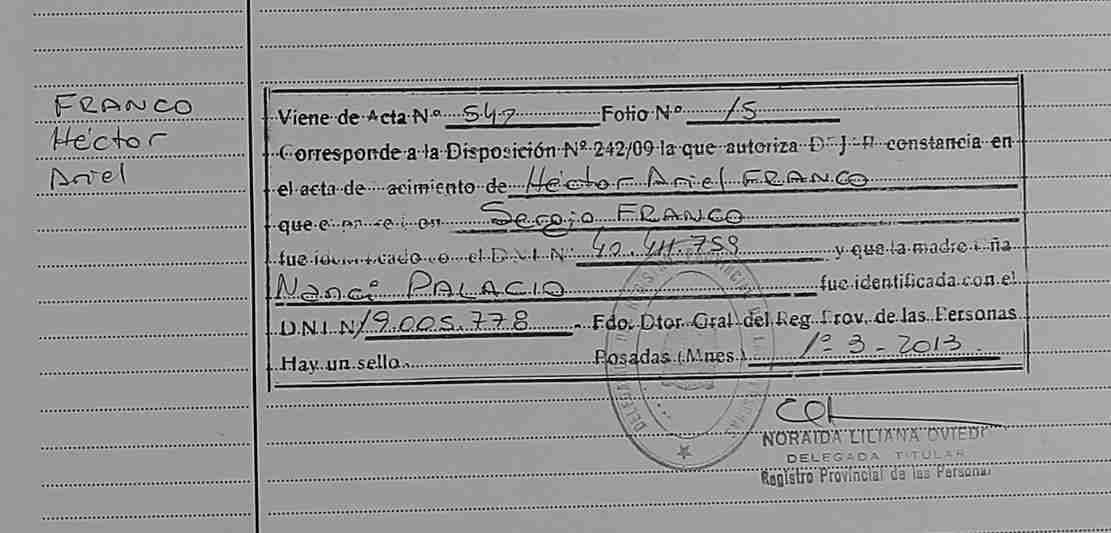 FRANCO
Héctor
Ariel
Viene de Acta Nº 547 Folio Nº 15
Corresponde a la Disposición Nº 242/09 la que autoriza D J R constancia en
el acta de acimiento de Héctor Ariel FRANCO
que Sergio FRANCO
fue el D.N.I. N y que la madre ña
Nanci PALACIO fue identificada con el
D.N.I. N 19.005.778 - Fdo. Dtor. Gral del Reg. Prov. de las Personas
Hay un sello Posadas (Mnes.) 1º - 3 - 2013.
NORAIDA LILIANA OVIEDO
DELEGADA TITULAR
Registro Provincial de las Personas